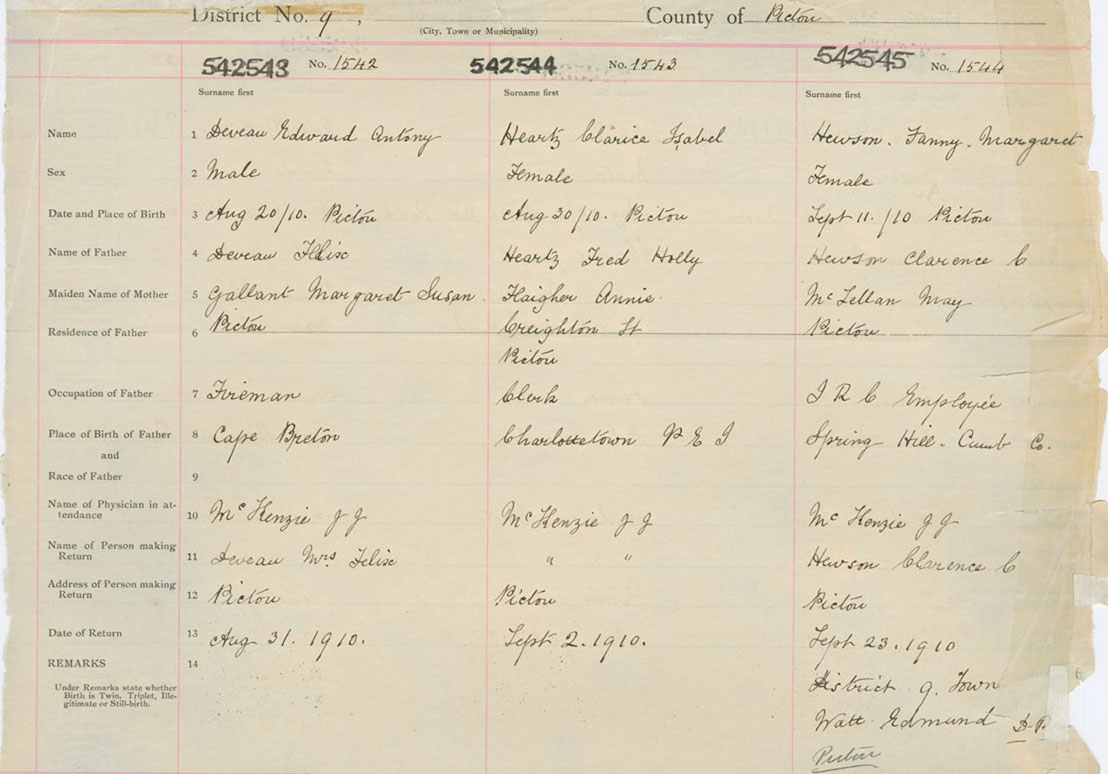 District No. 9, County of Pictou
(City, Town or Municipality)
542543 No. 1542 542544 No. 1543 542545 No. 1544
Surname first Surname first Surname first
Name 1 Deveau Edward Antony Heartz Clarice Isabel Hewson. Fanny. Margaret
Sex 2 Male Female Female
Date and Place of Birth 3 Aug 20/10. Pictou Aug 30/10. Pictou Sept 11./10 Pictou
Name of Father 4 Deveau Felix Heartz Fred Holly Hewson Clarence C
Maiden Name of Mother 5 Gallant Margaret Susan. Haigher Annie. McLellan May
Residence of Father 6 Pictou Creighton St Pictou
Pictou
Occupation of Father 7 Fireman Clerk I R C Employée
Place of Birth of Father 8 Cape Breton Charlottetown P E I Spring Hill. Cumb Co.
and
Race of Father 9
Name of Physician in at-
tendance 10 McKenzie J J McKenzie J J McKenzie J J
Name of Person making
Return 11 Deveau Mrs. Felix " " Hewson Clarence C
Address of Person making
Return 12 Pictou Pictou Pictou
Date of Return 13 Aug 31. 1910. Sept 2. 1910. Sept 23. 1910
REMARKS 14
Under Remarks state whether
Birth is Twin, Triplet, Ille-
gitimate or Still-birth.
District 9. Town
Watt Edmund D.R.
Pictou